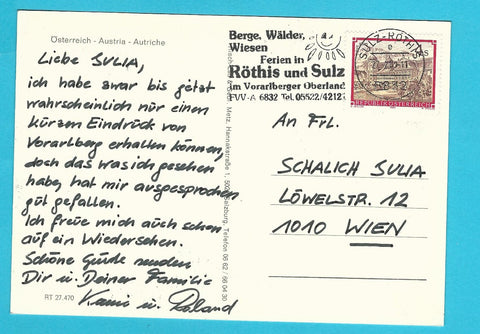 Österreich - Austria - Autriche
Liebe JULIA,
ich habe zwar bis jetzt
wahrscheinlich nur einen
kürzen Eindrück von
Vorarlberg erhalten können,
doch das was ich gesehen
habe, hat mir ausgesprochen
güt gefallen.
Ich freue mich auch schon
auf ein Wiedersehen.
Schöne Grüße senden
Dir u. Deiner Familie
u. Roland
RT 27.470
Metz, Hannakstraße 1, Salzburg, Telefon 06 62 / 66 04 30
Berge, Wälder,
Wiesen
Ferien in
Röthis und Sulz
im Vorarlberger Oberland
FVV-A 6832 Tel. 05522/4212
SULZ-RÖTHIS
REPUBLIK ÖSTERREICH
An Frl.
SCHALICH JULIA
LÖWELSTR. 12
1010 WIEN